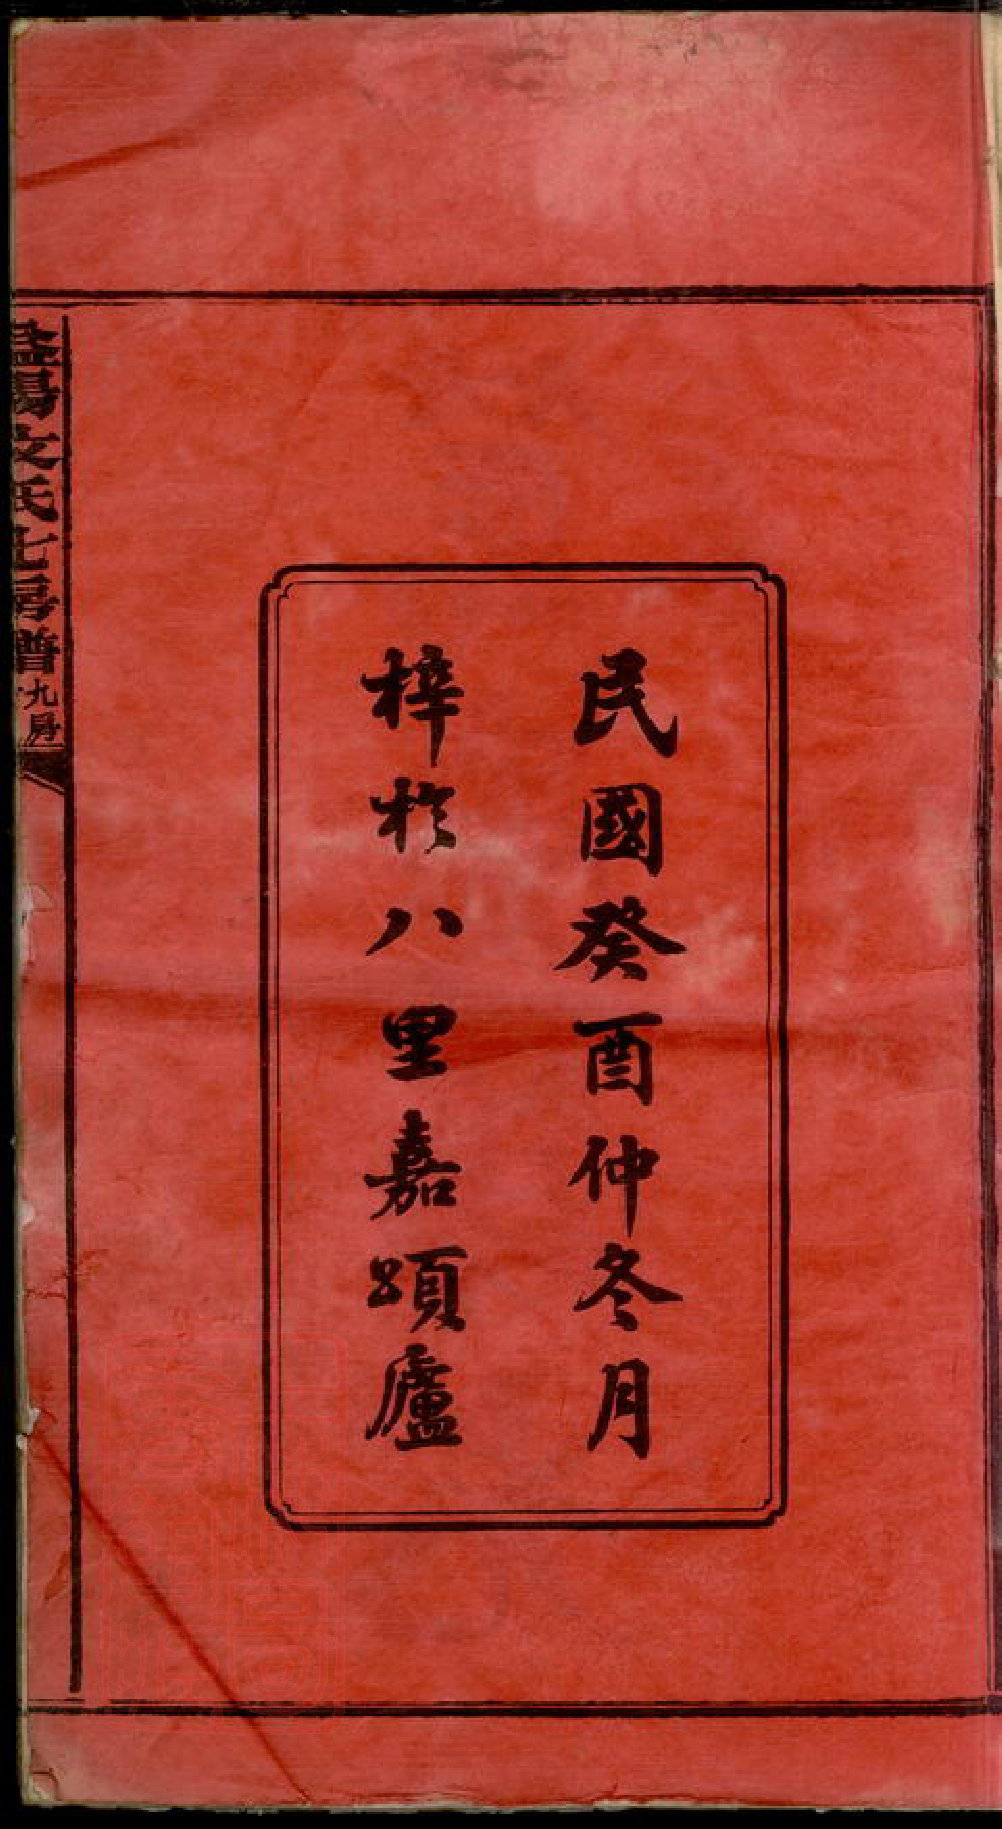 民國癸酉仲冬月
梓於八里嘉頌廬
益陽文氏七房譜
九房